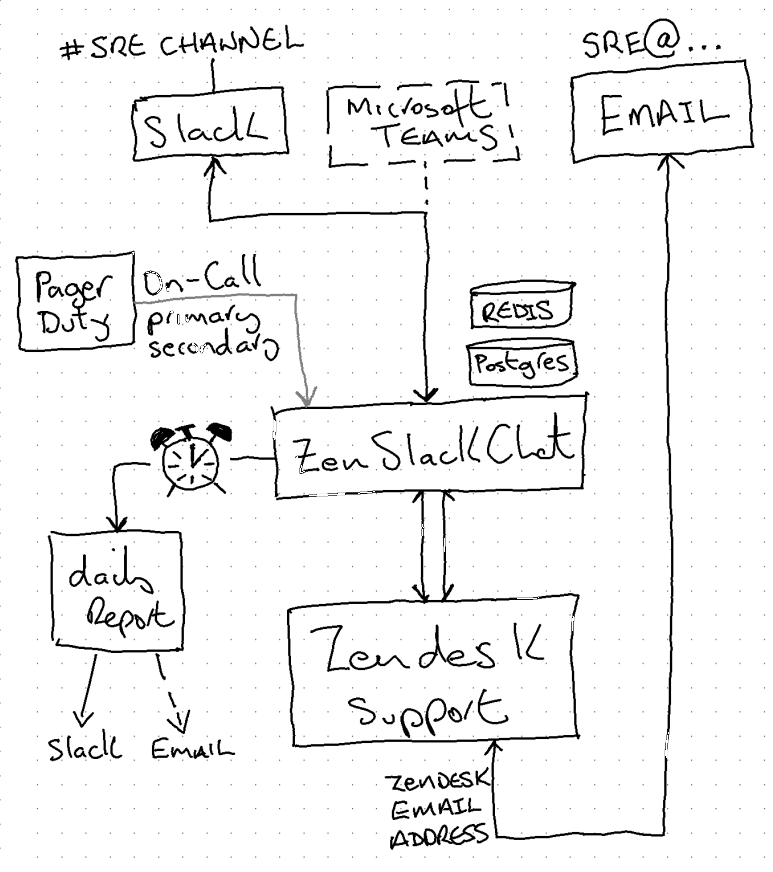 #SRE CHANNEL
Slack
Microsoft
TEAMS
SRE@...
EMAIL
Pager
Duty
On-Call
primary
secondary
REDIS
Postgres
ZenSlackChat
daily
Report
Slack
EMAIL
Zendesk
Support
ZENDESK
EMAIL
ADDRESS